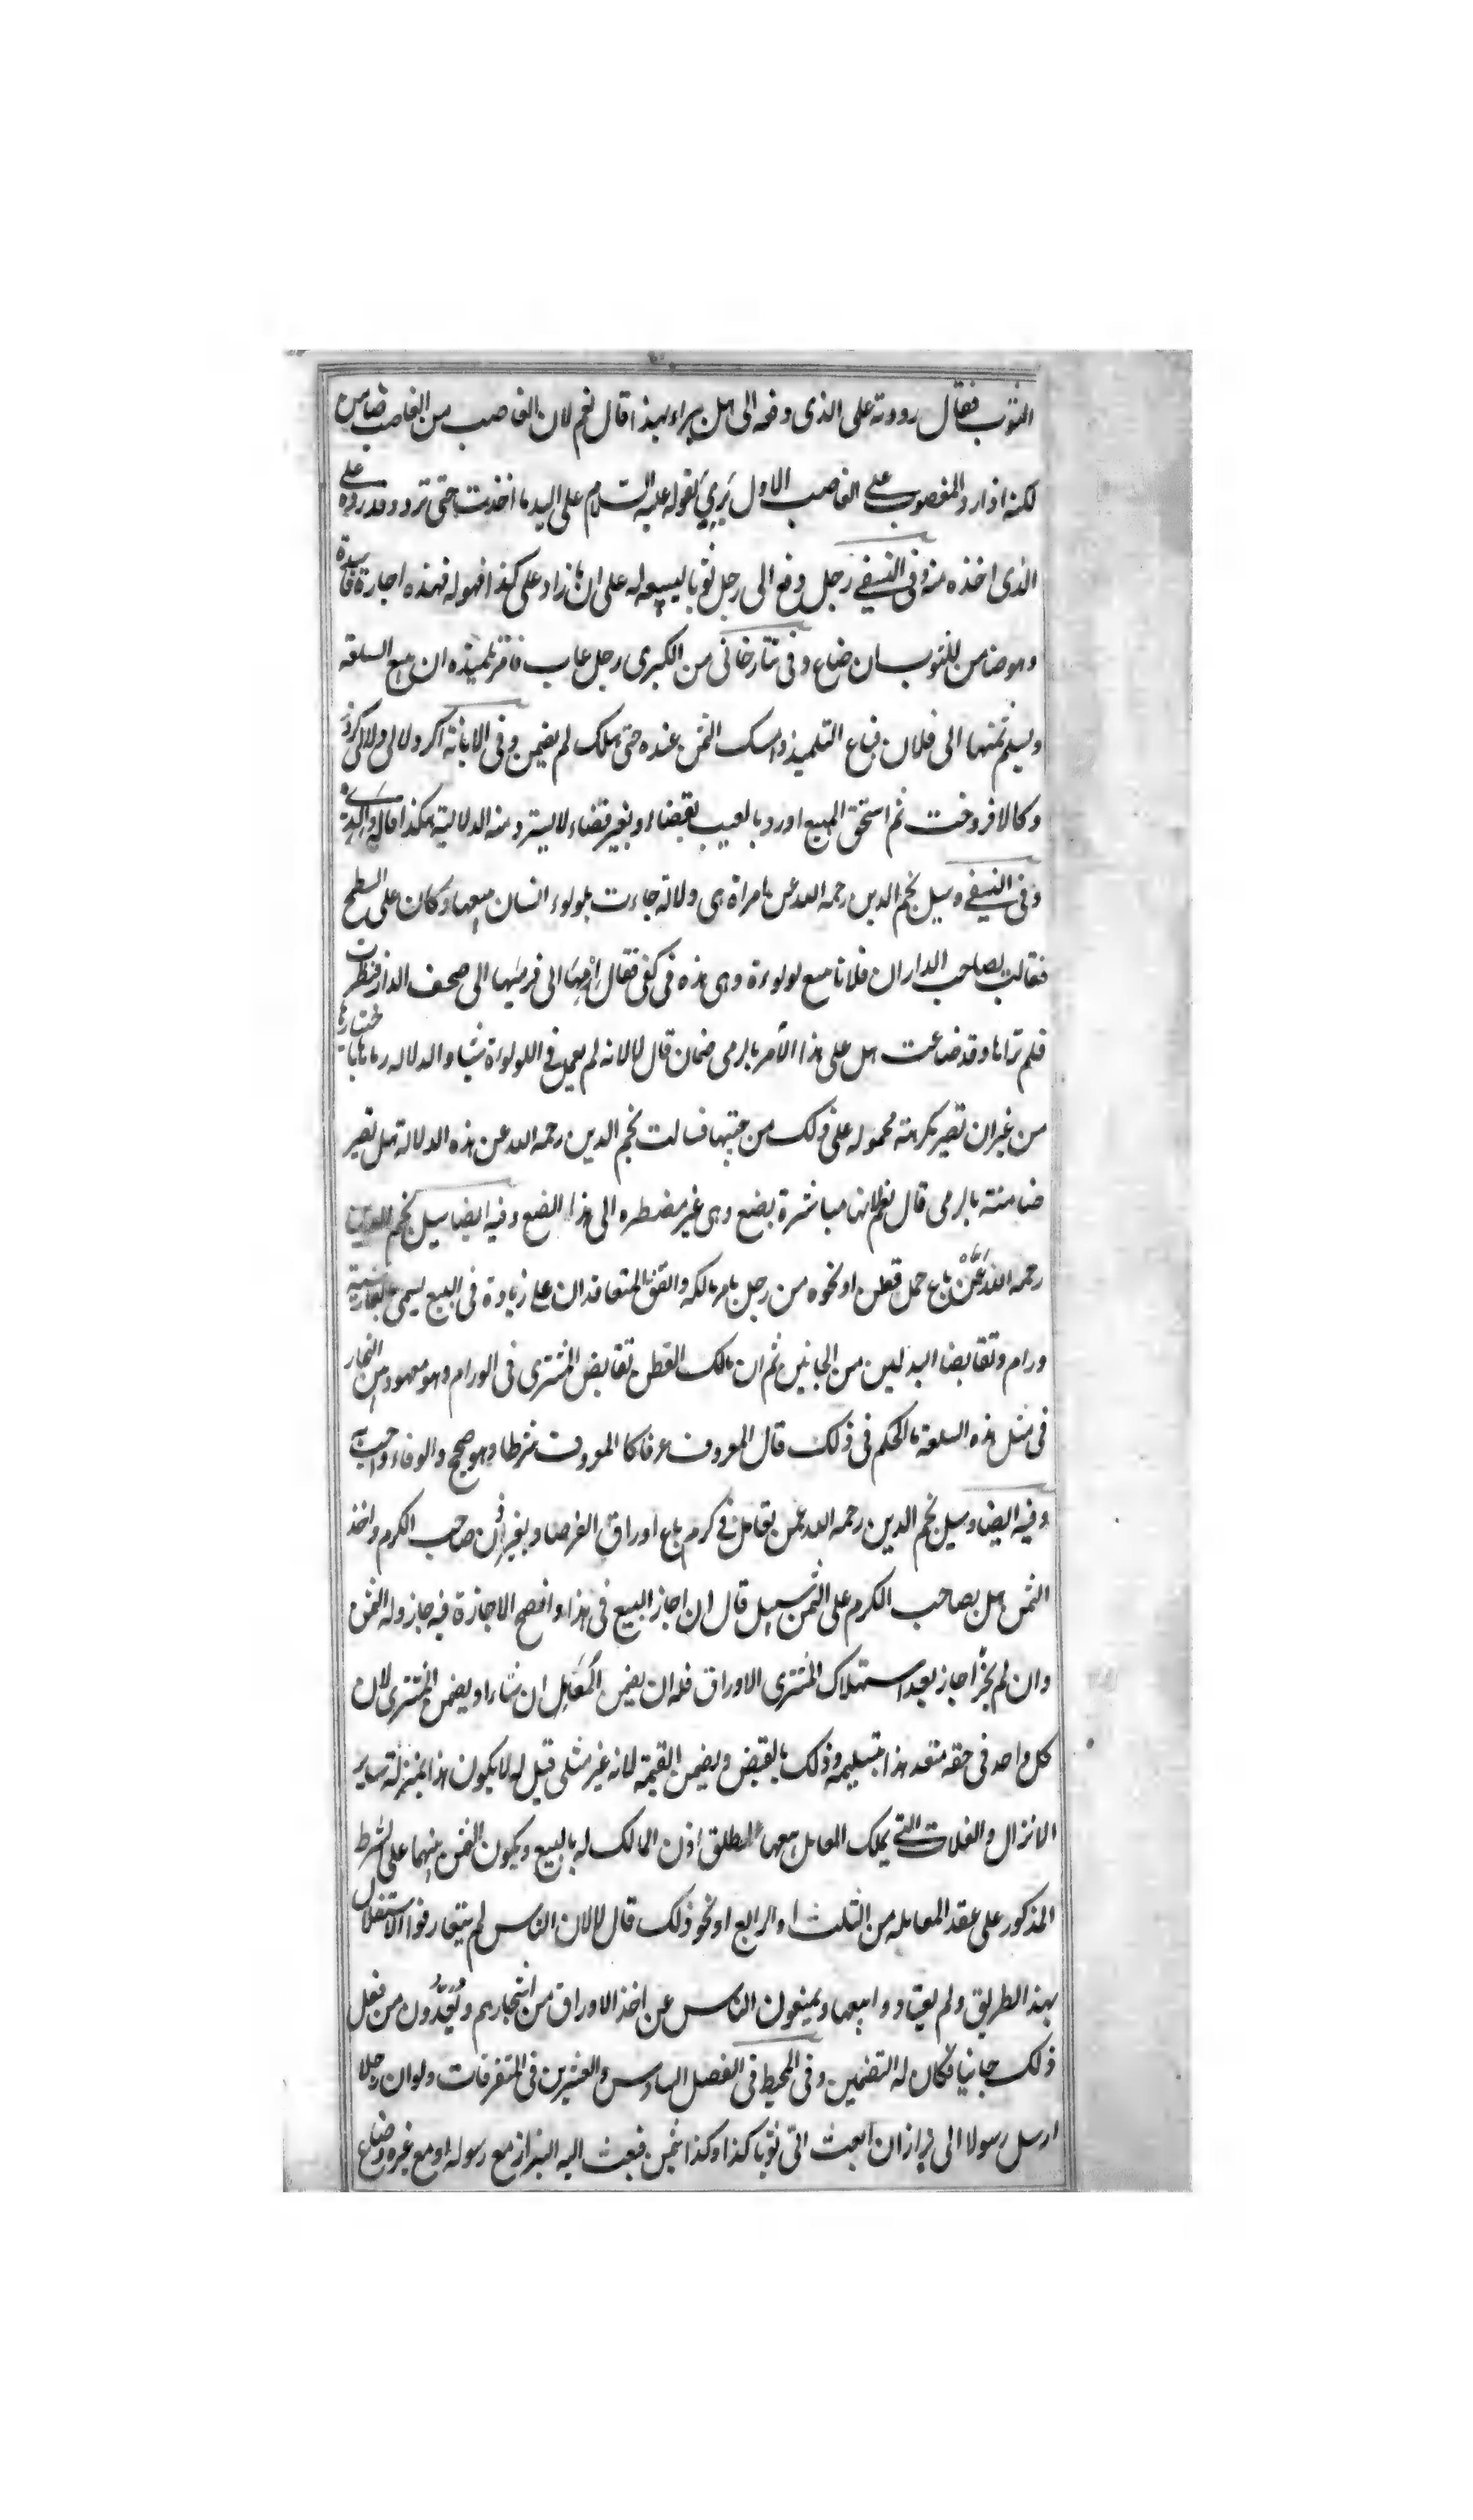 الثوب فقال رددته على الذى دفعه الى هل يبراء بهذا قال نعم لان الغاصب من الغاصب ضامن
لكنه اذا رد المغصوب على الغاصب الاول بَرِيَ لقوله عليه السلام على اليد ما اخذت حتى ترد وقد رده على
الذى اخذه منه وفى النسفى رجل دفع الى رجل ثوبا ليبيعه له على ان ما زاد على كذا فهو له فهذه اجارة فاسدة
وهو ضامن للثوب ان ضاع وفى تتارخانى من الكبرى رجل غاب فامر تلميذه ان يبيع السلعة
ويسلم ثمنها الى فلان فباع التلميذ وامسك الثمن عنده حتى هلك لم يضمن وفى الابانة اكر دلالى دلالى كرد
وكالا فروخت ثم استحق المبيع او رد بالعيب بقضاء او بغير قضاء لا يسترد منه الدلالية هكذا قال والدى
وفى النسفى وسيل نجم الدين رحمه الله عن امراة هى دلالة جاءت بلولوء انسان لتبيعها وكان على السطح
فقالت لصاحب الدار ان فلانا يبيع لولوءة وهى هذه فى كفى فقال اِرْمِيها الى فرميتها الى صحن الدار فنظرت
فلم تراها وقد ضاعت هل على هذا الآمر بالرمى ضمان قال لا لانه لم يعمل فى اللولوءة شيا والدلالة رمتها باختيارها
من غير ان تصير مكرهة محمولة على ذلك من جهتها فسالت نجم الدين رحمه الله عن هذه الدلالة هل تصير
ضامنة بالرمى قال نعم لانها مباشرة بضع وهى غير مضطره الى هذا الضع وفيه ايضا سيل نجم الدين
رحمه الله عمن باع حمل قطن او نحوه من رجل بامر مالكه واتفق المتعاقدان على زيادة فى البيع يسمى بالفارسية
ورام وتقابضا البدلين من الجانبين ثم ان مالك القطن تقابض المشترى فى الورام وهو معهود من التجار
فى مثل هذه السلعة ما الحكم فى ذلك قال المعروف عرفا كا المعروف شرطا وهو صحيح والوفاء واجب
وفيه ايضا وسيل نجم الدين رحمه الله عمن يعامل فى كرم باع اوراق الفرصاد بغير اذن صاحب الكرم واخذ
الثمن هل لصاحب الكرم على الثمن سبيل قال ان اجاز البيع فى هذا وافصح الاجازة فيه جاز وله الثمن
وان لم يجز اجاز بعد استهلاك المشترى الاوراق فله ان يضمن المُعَامِل ان شاء او يضمن المشترى لان
كل واحد فى حقه متعد هذا بتسليمه وذلك بالقبض ويضمن القيمة لانه غير مثلى قيل له لا يكون هذا بمنزلة ساير
الانزال والغلات التى يملك المعامل بيعها لمطلق اذن المالك له بالبيع ويكون الثمن بينهما على الشرط
المذكور على عقد المعاملة من الثلث او الرابع او نحو ذلك قال لا لان الناس لم يتعارفوا الاستغلال
بهذا الطريق ولم يعتادوا بيعها ويمنعون الناس عن اخذ الاوراق من اشجارهم ويُعَدُّون من فعل
ذلك جانيا فكان له التضمين وفى المحيط فى الفصل السادس والعشرين فى المتفرقات ولو ان رجلا
ارسل رسولا الى بزاز ان ابعث الىّ ثوبا كذا وكذا بثمن فبعث اليه البزاز مع رسوله او مع غيره وضاع